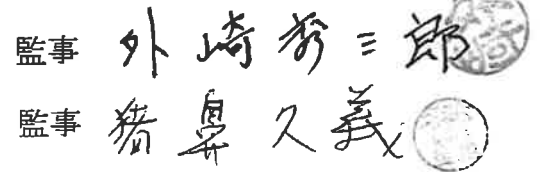 監事 外崎秀三郎
監事 猪鼻久義